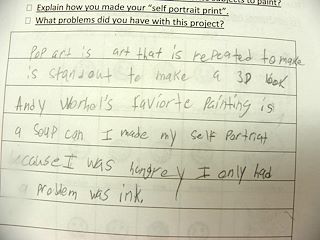 subjects to paint?
□ Explain how you made your "self portrait print".
□ What problems did you have with this project?
Pop art is art that is repeated to make
is standout to make a 3D look
Andy Worhol's faviorte Painting is
a soup can I made my self Portriat
ecause I was hungrey I only had
a problem was ink.